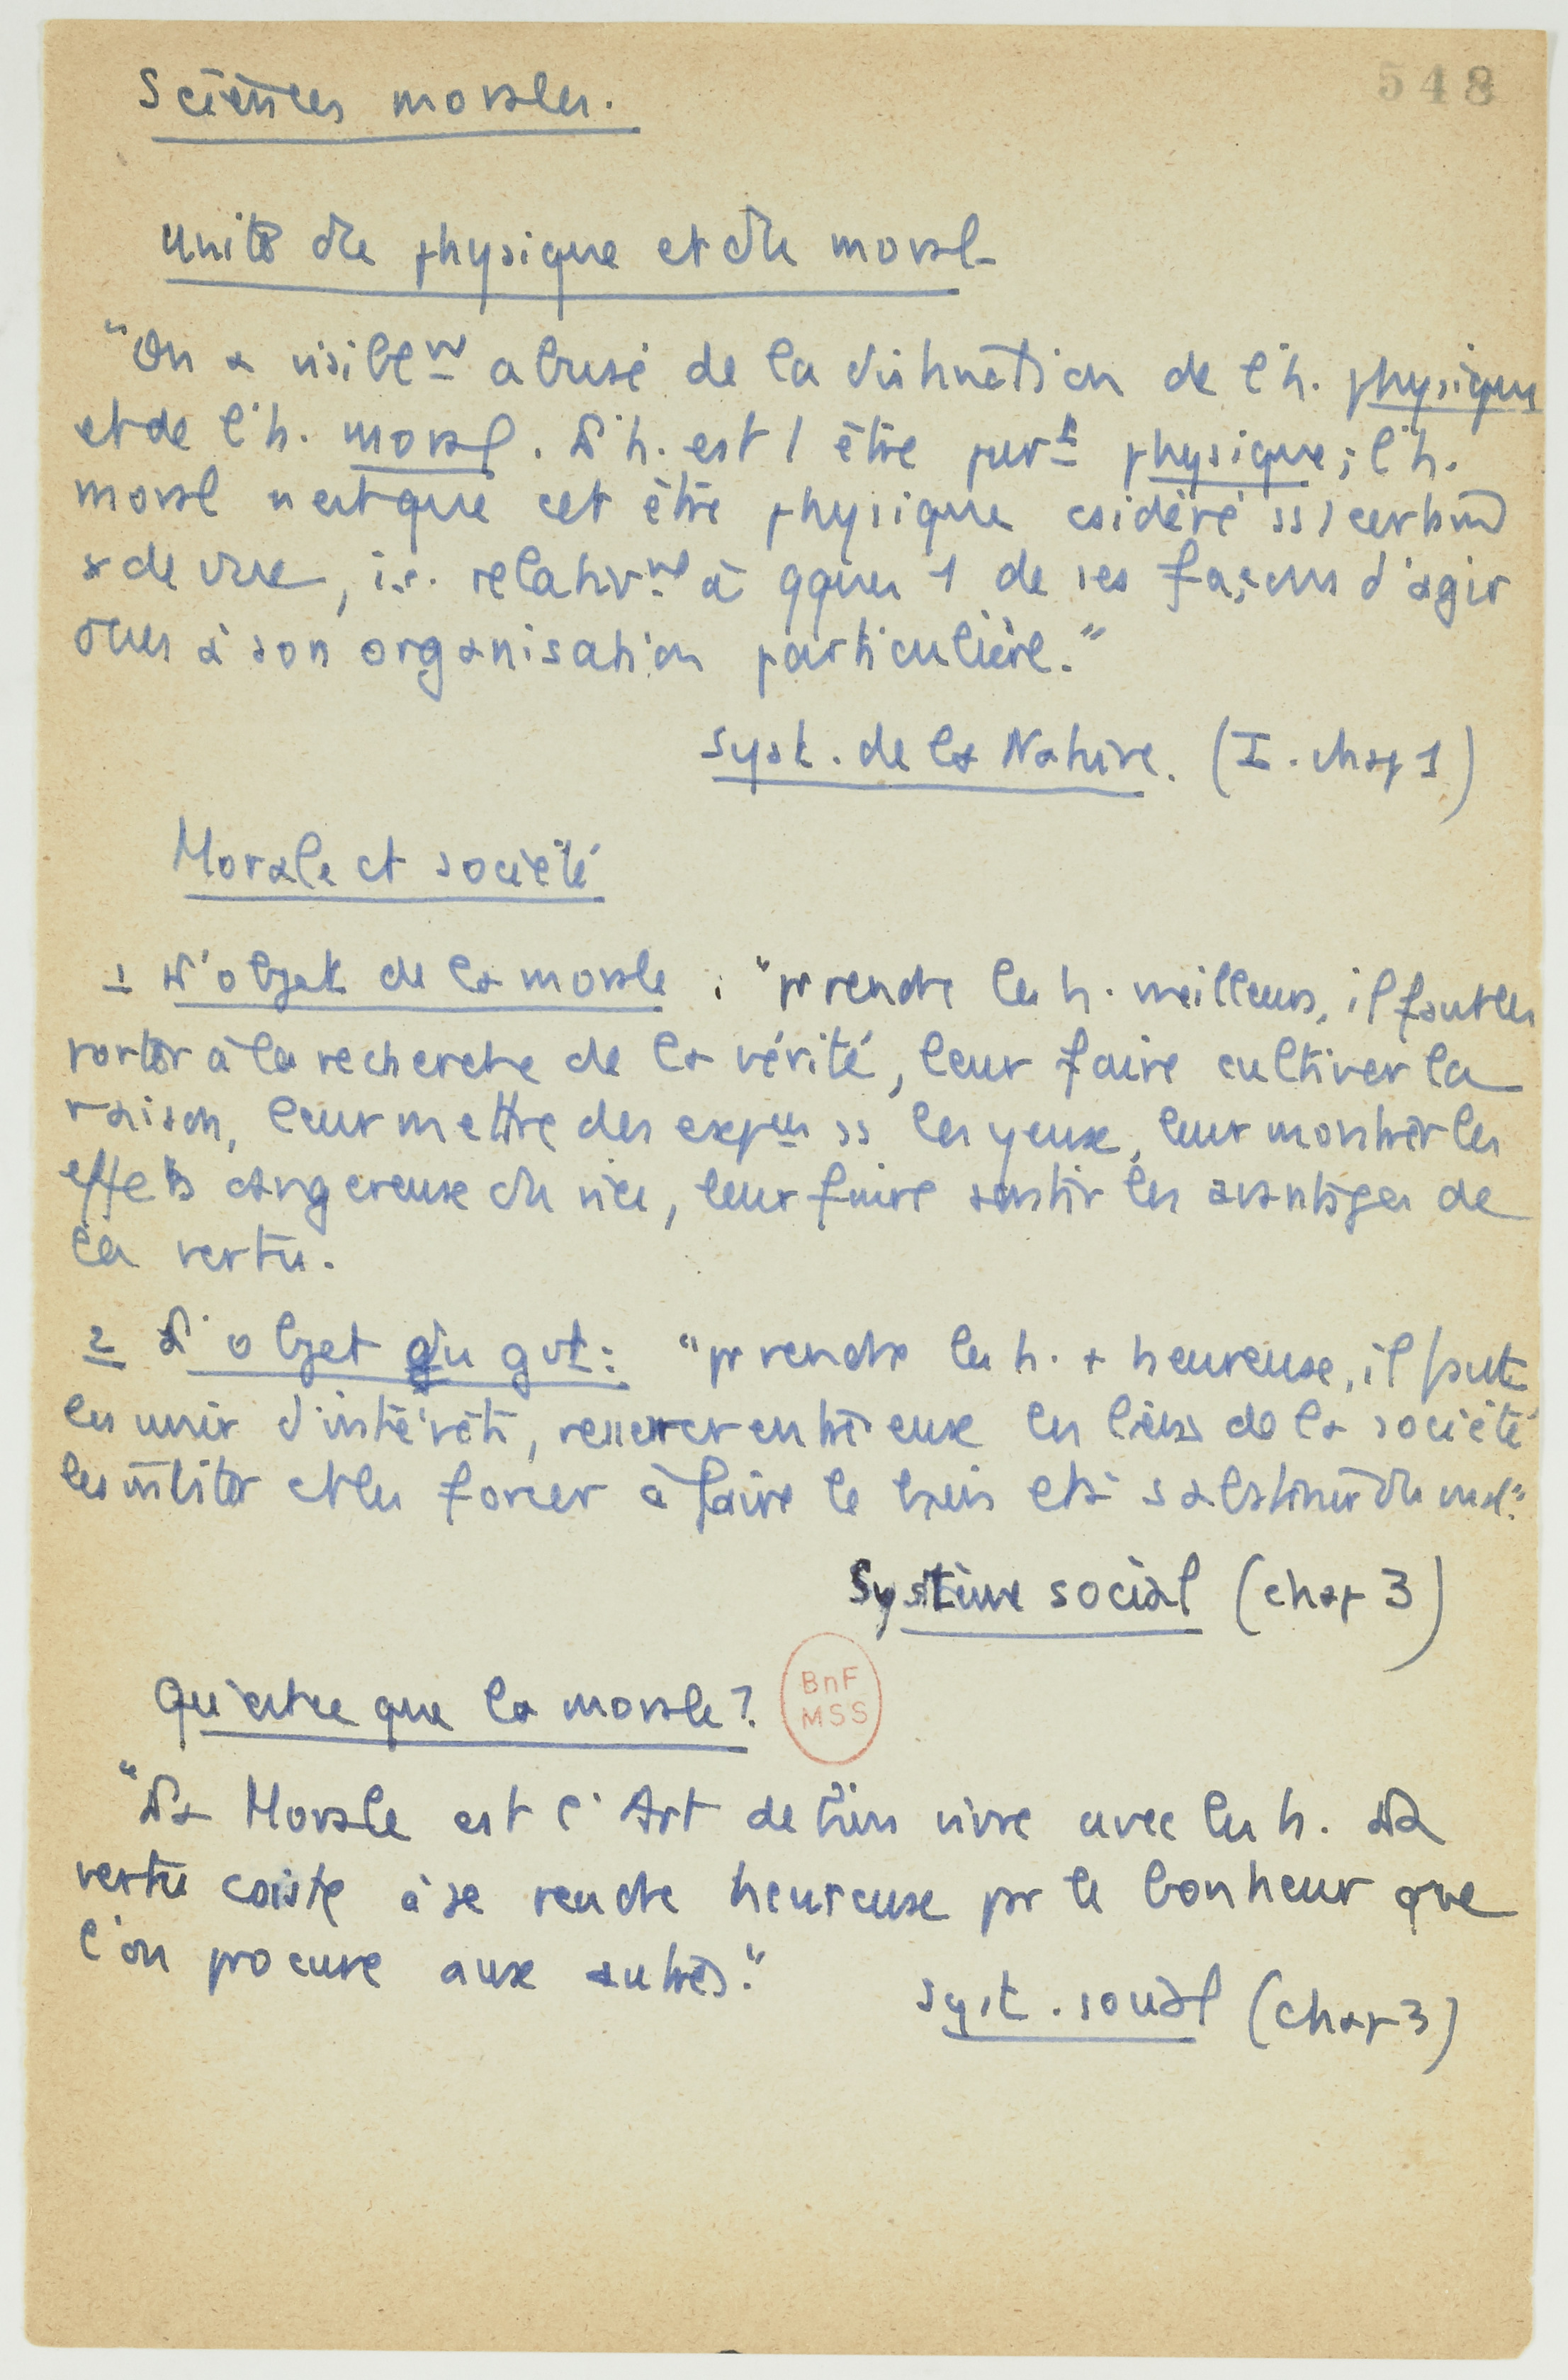 548
Sciences morales.
Unité du physique et du moral
"On a visiblemt abusé de la distinction de l'h. physique
et de l'h. moral. L'h. est 1 être purt physique ; l'h.
moral n'est que cet être physique csidéré ss 1 certain
x de vue, i.e. relativmt à qques 1 de ses façons d'agir
dues à son organisation particulière."
Syst. de la Nature. (I. chap 1)
Morale et société
1 L'objet de la morale : "pr rendre les h. meilleurs, il faut les
porter à la recherche de la vérité, leur faire cultiver la
raison, leur mettre des expces ss les yeux, leur montrer les
effets dangereux du vice, leur faire sentir les avantages de
la vertu.
2 L'objet du gvt : "pr rendre les h. + heureux, il faut
les unir d'intérêts, resserrer entre eux les liens de la société
les inviter et les forcer à faire le bien et à s'abstenir du mal."
Système social (chap 3)
Qu'est-ce que la morale ?
BnF
MSS
"La Morale est l'Art de bien vivre avec les h. La
vertu csiste à se rendre heureux pr le bonheur que
l'on procure aux autres."
Syst. social (chap 3)